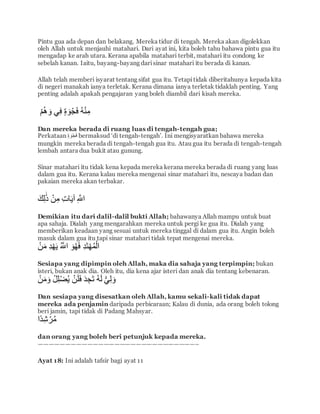 Pintu gua ada depan dan belakang. Mereka tidur di tengah. Mereka akan digolekkan
oleh Allah untuk menjauhi matahari. Dari ayat ini, kita boleh tahu bahawa pintu gua itu
mengadap ke arah utara. Kerana apabila matahari terbit, matahari itu condong ke
sebelah kanan. Iaitu, bayang-bayang dari sinar matahari itu berada di kanan.
Allah telah memberi isyarat tentang sifat gua itu. Tetapi tidak diberitahunya kepada kita
di negeri manakah ianya terletak. Kerana dimana ianya terletak tidaklah penting. Yang
penting adalah apakah pengajaran yang boleh diambil dari kisah mereka.
وَهُمْ فِي فَجْوَةٍ مِنْهُ
Dan mereka berada di ruang luas di tengah-tengah gua;
Perkataan فَجْوَةٍ bermaksud ‘di tengah-tengah’. Ini mengisyaratkan bahawa mereka
mungkin mereka berada di tengah-tengah gua itu. Atau gua itu berada di tengah-tengah
lembah antara dua bukit atau gunung.
Sinar matahari itu tidak kena kepada mereka kerana mereka berada di ruang yang luas
dalam gua itu. Kerana kalau mereka mengenai sinar matahari itu, nescaya badan dan
pakaian mereka akan terbakar.
ذَٰلِكَ مِنْ آيَاتِ اللَّهِ
Demikian itu dari dalil-dalil bukti Allah; bahawanya Allah mampu untuk buat
apa sahaja. Dialah yang mengarahkan mereka untuk pergi ke gua itu. Dialah yang
memberikan keadaan yang sesuai untuk mereka tinggal di dalam gua itu. Angin boleh
masuk dalam gua itu tapi sinar matahari tidak tepat mengenai mereka.
مَنْ يَهْدِ اللَّهُ فَهُوَ الْمُهْتَدِ
Sesiapa yang dipimpin oleh Allah, maka dia sahaja yang terpimpin; bukan
isteri, bukan anak dia. Oleh itu, dia kena ajar isteri dan anak dia tentang kebenaran.
وَمَنْ يُضْلِلْ فَلَنْ تَجِدَ لَهُ وَلِيًّا
Dan sesiapa yang disesatkan oleh Allah, kamu sekali-kali tidak dapat
mereka ada penjamin daripada perbicaraan; Kalau di dunia, ada orang boleh tolong
beri jamin, tapi tidak di Padang Mahsyar.
مُرْشِدًا
dan orang yang boleh beri petunjuk kepada mereka.
Ayat 18: Ini adalah tafsir bagi ayat 11